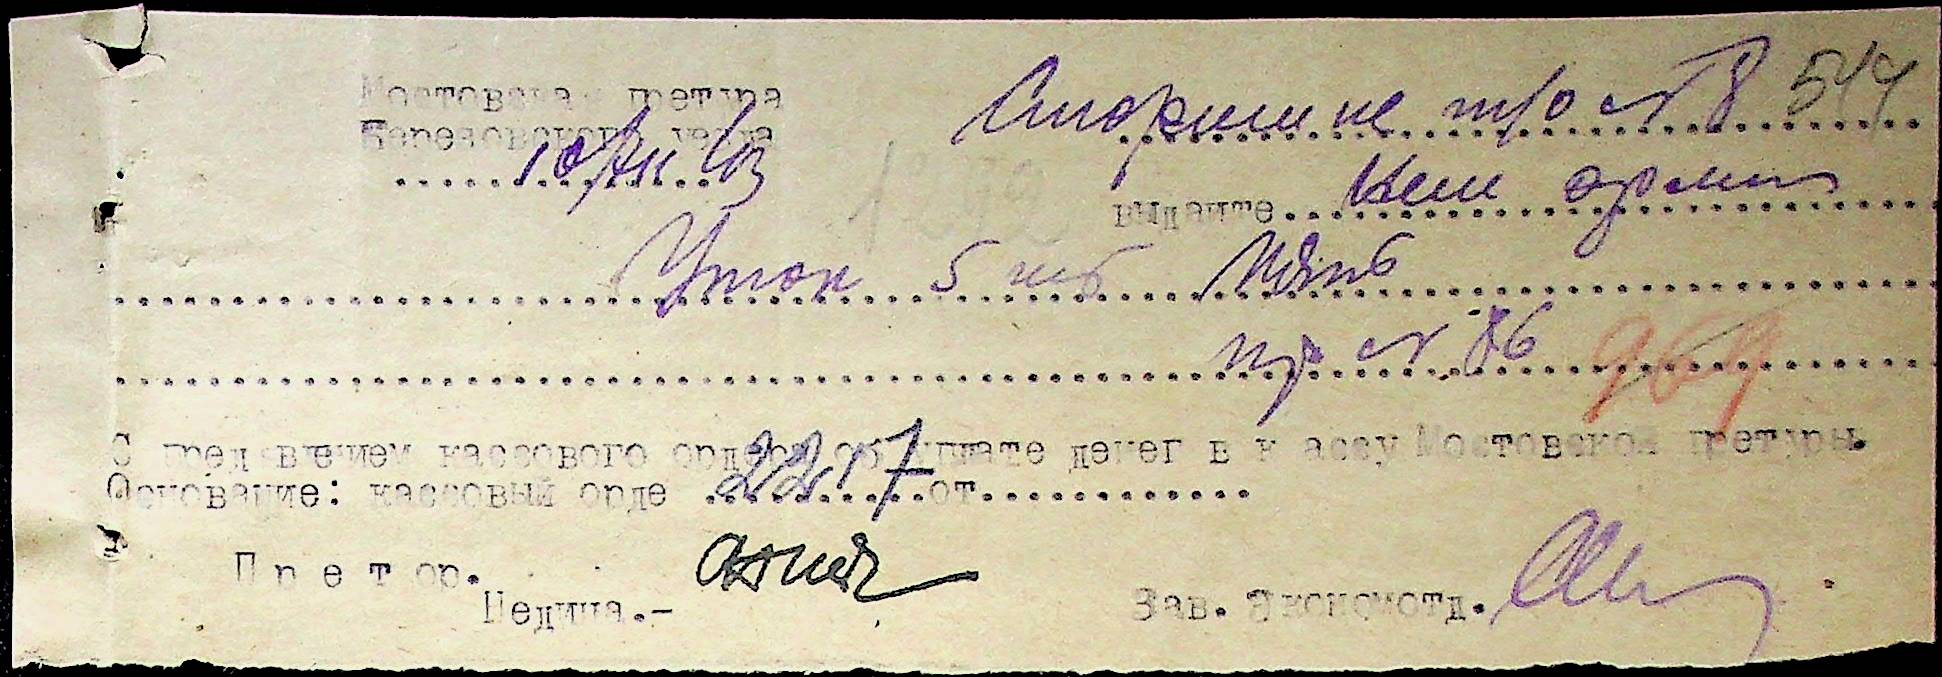 Мостовская претура
Березовского уезда
10/XII 43
Старшине пр/о с N 8 544
выдайте
Уток 5 шт
пр с N 86 969
С пред'явлением кассового ордера об уплате денег в кассу Мостовской претуры.
Основание: кассовый орде 2217 от
Претор.
Недина.-
Зав. Экономотд.